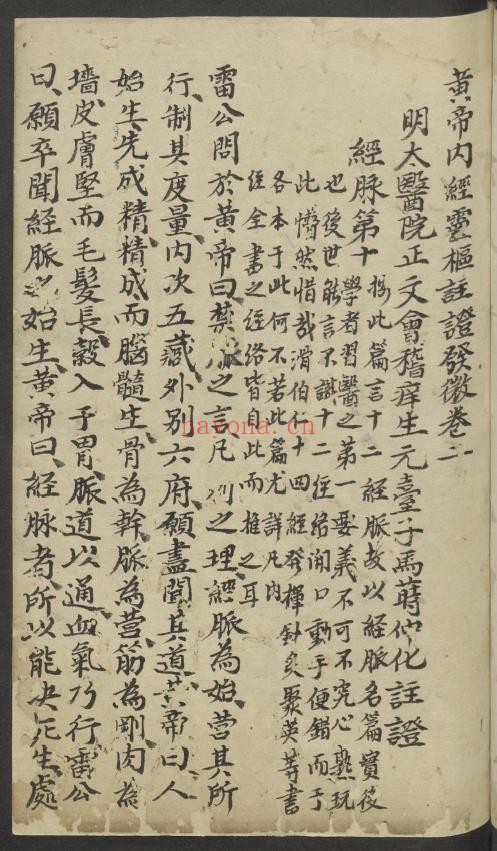 黃帝内經靈樞註證發微卷二
明太醫院正文會稽庠生元臺子馬蒔仲化註證
經脉第十
按此篇言十二經脉故以經脉名篇實後
學者習醫之第一要義不可不究心熟玩
也後世能言不識十二經絡開口動手便錯而于
此懵然惜哉滑伯仁十四經發揮針灸聚英等書
各本于此何不若此篇尤詳凡内
經全書之經絡皆自此而推之耳
雷公問於黃帝曰禁脉之言凡刺之理經脉為始營其所
行制其度量内次五藏外別六府願盡聞其道黃帝曰人
始生先成精精成而腦髓生骨為幹脉為營筋為剛肉為
墻皮膚堅而毛髮長穀入于胃脉道以通血氣乃行雷公
曰願卒聞經脉之始生黃帝曰經脉者所以能决死生處
hayona.cn